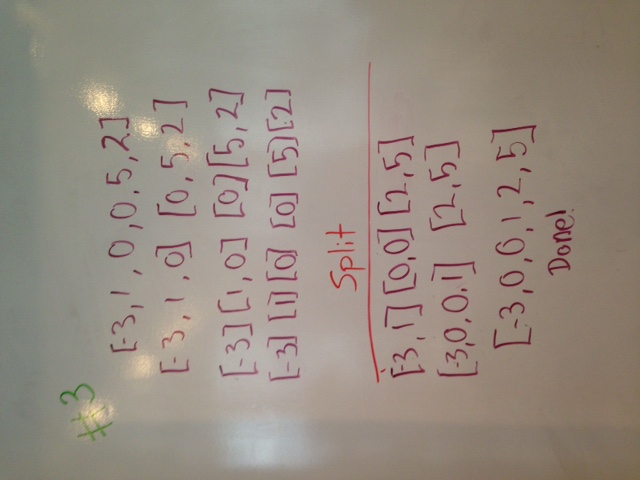 #3
[-3, 1, 0, 0, 5, 2]
[-3, 1, 0] [0, 5, 2]
[-3] [1, 0] [0] [5, 2]
[-3] [1] [0] [0] [5] [2]
Split
[-3, 1] [0, 0] [2, 5]
[-3, 0, 0, 1] [2, 5]
[-3, 0, 0, 1, 2, 5]
Done!